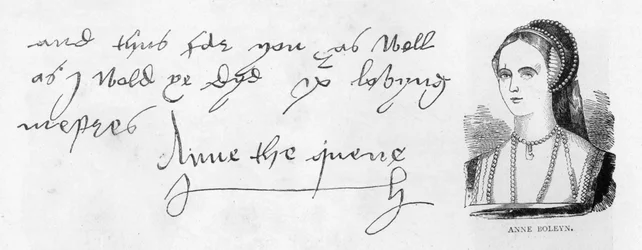 and thus far you as Well
as I Wold ye dyd yr lovyng
mestres
Anne the quene
ANNE BOLEYN.